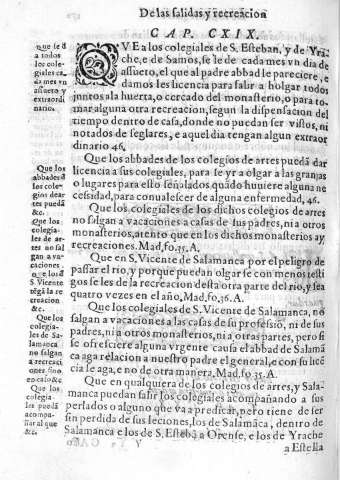 De las salidas y recreacion
CAP. CXIX.
QVE a los colegiales de S. Esteban, y de Yra
che, e de Samos, se le de cada mes vn dia de
assueto, el que al padre abbad le pareciere, e
damos les licencia para salir a holgar todos
juntos a la huerta, o cercado del monasterio, o para to-
mar alguna otra recreacion, segun la dispensacion del
tiempo dentro de casa, donde no puedan ser vistos, ni
notados de seglares, e aquel dia tengan algun extraor
dinario 46,
Que los abbades de los colegios de artes puedā dar
licencia a sus colegiales, para se yr a olgar a las granjas
o lugares para esto señalados quādo huuiere alguna ne
cessidad, para conualescer de alguna enfermedad, 46.
Que los colegiales de los dichos colegios de artes
no salgan a vacaciones a casas de sus padres, ni a otros
monasterios, atento que en los dichos monasterios ay
recreaciones. Mad, fo. 35. A.
Que en S. Vicente de Salamanca por el peligro de
passar el rio, y porque puedan olgar se con menos testi
gos se les de la recreacion desta otra parte del rio, y sea
quatro vezes en el año, Mad, fo. 36. A.
Que los colegiales de S. Vicente de Salamanca, no
salgan a vacaciones a las casas de su professiō, ni de sus
padres, ni a otros monasterios, ni a otras partes, pero si
se ofresciere alguna vrgente causa el abbad de Salamā
ca aga relacion a nuestro padre el general, e con su licē
cia le aga, e no de otra manera, Mad, fo. 35. A.
Que en qualquiera de los colegios de artes, y Sala-
manca puedan salir los colegiales acompañando a sus
perlados o alguno que va a predicar, pero tiene de ser
sin perdida de sus leciones, los de Salamāca, dentro de
Salamanca e los de S. Estebā a Orense, e los de Yrache
a Estella
que se d
a todos
los cole-
giales ca
da mes vn
assueto y
extraordi
nario.
Que los
abbades d
los cole-
gios dear
tes puedā
&c.
Que los
colegia-
les de ar-
tes no sal
gan a va-
caciones
Que los
colegia-
les de Sa-
lamanca
no salgan
a recreaci
ones sino
Que los
colegia-
les puedā
acompa-
ñar al que
&c.